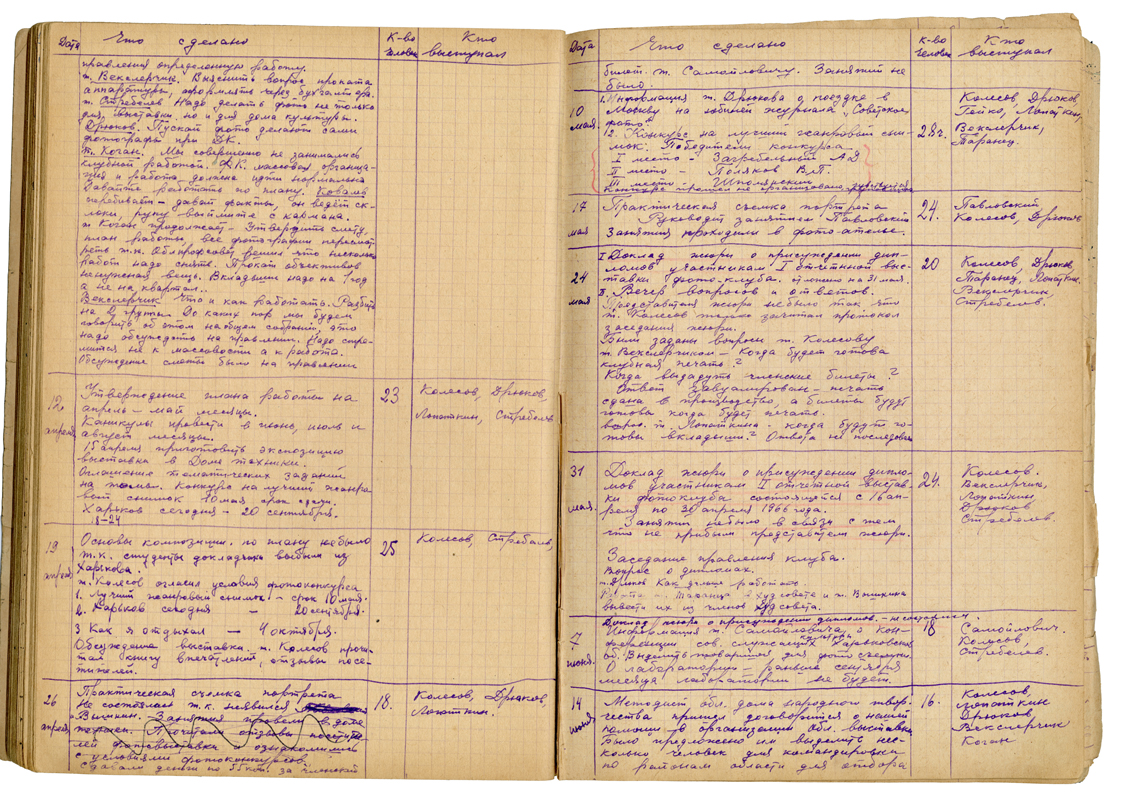 Дата
Что сделано
К-во человек
Кто выступал
правления определенную работу.
т. Векслерчик. Выяснить вопрос проката
аппаратуры, оформлять через бухгалтера.
т. Стребелев Надо делать фото не только
для выставки. но и для дома культуры.
Дрюков. Пускай фото делают сами
фотографы при ДК.
т. Коган. Мы совершенно не занимались
клубной работой. Ф.К. массовая организа-
ция и работа должна идти нормально
Давайте работать по плану. Ковалев
перебивает – давай факты, он ведет ск-
луки, руку выймите с кармана.
т. Коган продолжает – Утвердить смету,
план работы все фотографии пересмот-
реть т.к. Облпрофсовет решил что несколько
работ надо снять. Прокат объективов
ненужная вещь. Вкладыши надо на 1 год
а не на квартал.
Векслерчик Что и как работать. Разбить
на группы. До каких пор мы будем
говорить об этом на общем собрании, это
надо обсуждать на правлении. Надо стре-
мится не к массовости а к работа.
Обсуждение сметы было на правлении
12 апреля
Утверждение плана работы на
апрель – май месяцы.
Каникулы провести в июнь, июль и
август месяцы.
15 апреля приготовить экспозицию
выставка в Доме техники.
Оглашение тематических заданий
на темы. Конкурс на лучший жанро-
вый снимок 10 мая срок сдачи.
Харьков сегодня – 20 сентября.
18–24
23
Колесов, Дрюков,
Лопаткин, Стребелев
19 апреля
Основы композиции. по плану небыло
т.к. студенты докладчики выбыли из
Харькова.
т. Колесов огласил условия фотоконкурса
1. Лучший жанровый снимок – срок 10 мая.
2. Харьков сегодня – 20 сентября.
3 Как я отдыхал – 4 октября.
Обсуждение выставки. т. Колесов прочи-
тал книгу впечатлений, отзывы посе-
тителей.
25
Колесов, Стребелев,
26 апреля
Практическая съемка портрета
Не состоялась т.к. неявился
т. Вышкин. Занятия провели в доме
техники. Прочитали отзывы посетите-
лей фотовыставки ознакомились
с условиями фотоконкурсов.
сдавали деньги по 55 коп. за членский
18.
Колесов, Дрюков,
Лопаткин.
Дата
Что сделано
К-во человек
Кто выступал
билет. т. Самойловичу. Занятий не
было
10 мая.
1. Информация т. Дрюкова о поездке в
Москву на юбилей журнала „Советское
фото“
2. Конкурс на лучший жанровый сни-
мок. Победители конкурса
I место – Загребельный А Д
II место – Поляков В.П.
III место – Шполянский
Конкурс прошел не организовано
28ч.
Колесов, Дрюков
Гейко, Лопаткин,
Векслерчик,
Таранец.
17 мая
Практическая съемка портрета
Руководит занятием Павловский
Занятия проходили в фотоателье.
24.
Павловский
Колесов, Дрюков
24 мая
I Доклад жюри о присуждении дип-
ломов участникам I отчетной выс-
тавки фото-клуба. отложено на 31 мая.
II. Вечер вопросов и ответов.
Представителя жюри небыло так что
т. Колесов только зачитал протокол
заседания жюри.
Были заданы вопросы т. Колесову
т. Векслерчиком – Когда будет готова
клубная печать?
Когда выдадут членские билеты?
Ответ завуалирован – печать
сдана в производство, а билеты будут
готовы когда будет печать.
вопрос т. Лопаткина. когда будут го-
товы вкладыши? Ответа не последовало
20
Колесов, Дрюков,
Таранец, Лопаткин,
Векслерчик
Стребелев.
31 мая.
Доклад жюри о присуждении дипло-
мов участникам II отчетной выстав-
ки фотоклуба состоящейся с 16 ап-
реля по 30 апреля 1966 года.
Занятия небыло в связи с тем
что не прибыл представитель жюри.
Заседание правления клуба.
Вопрос о дипломах.
т. Дрюков Как дальше работать.
Работа т. Таранца в худсовете и т. Вышкина
вывести их из членов худсовета.
24.
Колесов.
Векслерчик,
Лопаткин
Дрюков
Стребелев.
7 июня.
Доклад жюри о присуждении дипломов. – не состоялся
Информация т. Самойловича о кон-
ференции сов. культуры Харьковской
обл. Выделить товарищей для фото съемки.
О лаборатории – раньше сентября
месяца лаборатории не будет.
18
Самойлович.
Колесов
Стребелев.
14 июня
Методист обл. дома народного твор-
чества пришел договорится о нашей
помощи в организации обл. выставки
Было предложено им выделить нес-
колько человек для командировки
по районам области для отбора
16.
Колесов,
Лопаткин
Дрюков,
Векслерчик
Коган